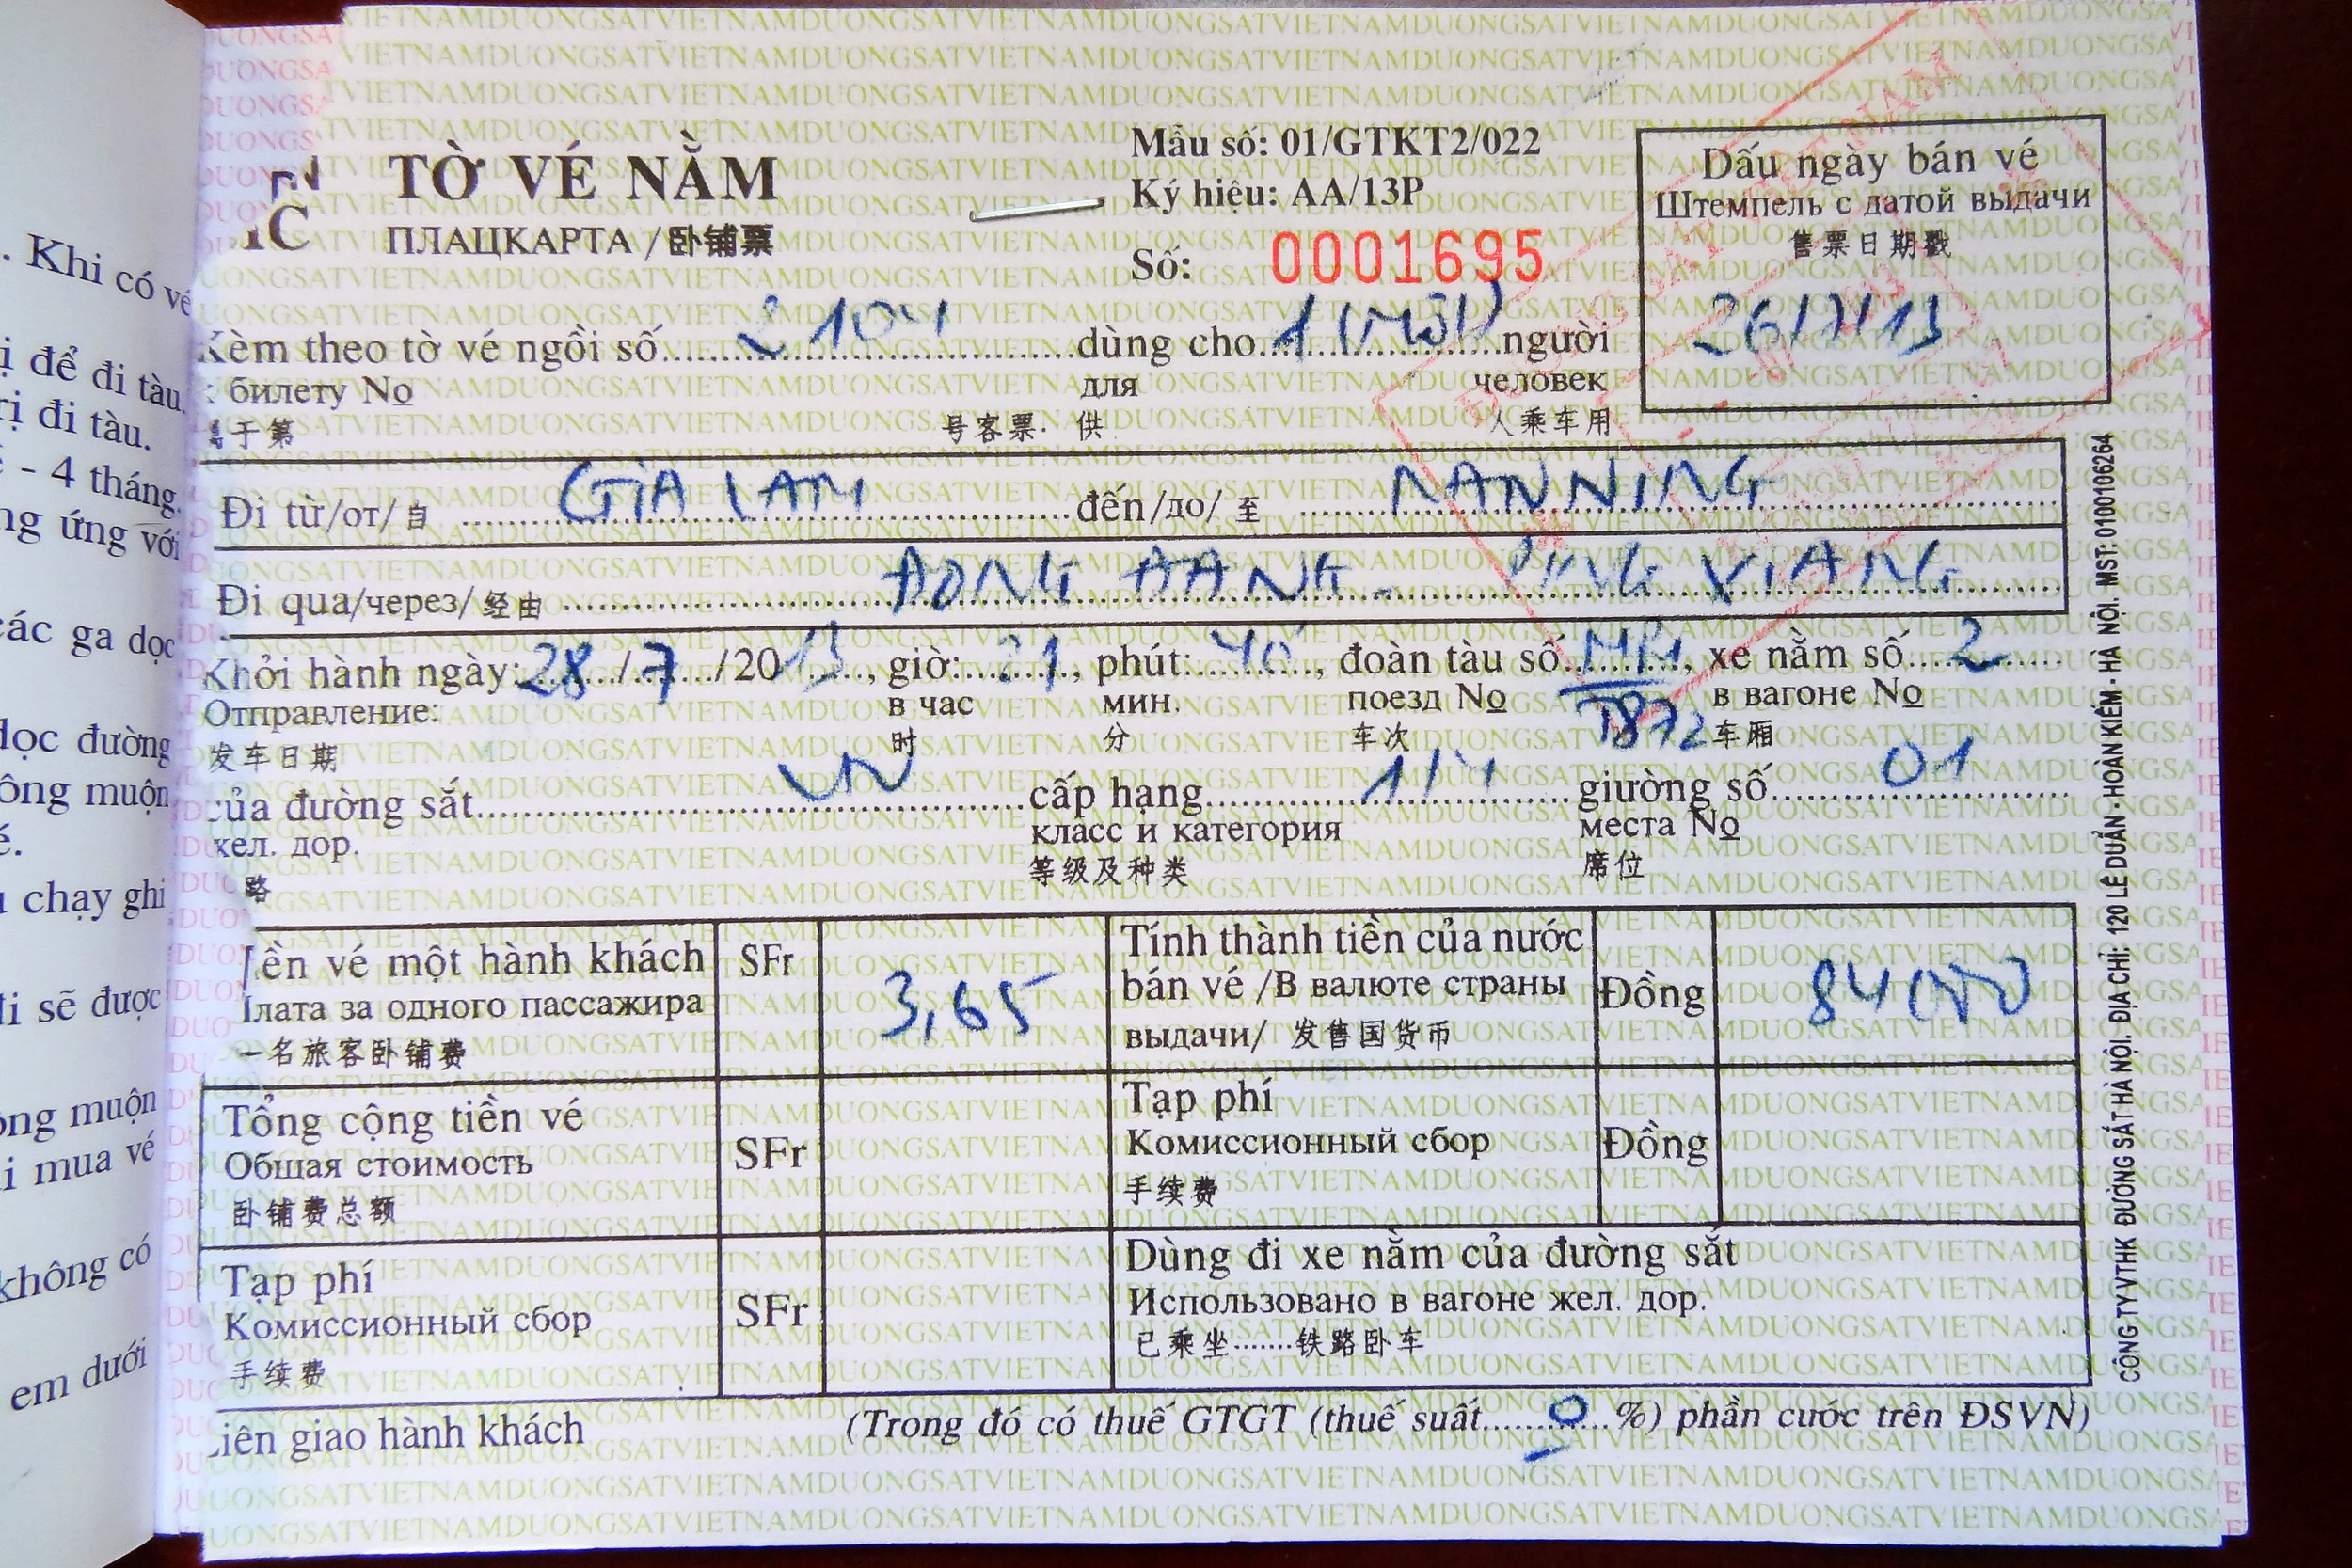 . Khi có vé
ị để đi tàu.
rị đi tàu.
- 4 tháng.
ng ứng với
các ga dọc
dọc đường
ông muộn
é.
u chạy ghi
đi sẽ được
ông muộn
i mua vé
không có
em dưới
TỜ VÉ NẰM
ПЛАЦКАРТА / 卧铺票
Mẫu số: 01/GTKT2/022
Ký hiệu: AA/13P
Số: 0001695
Dấu ngày bán vé
Штемпель с датой выдачи
售票日期戳
26/7/13
Kèm theo tờ vé ngồi số 2104 dùng cho 1 (một) người
к билету No для человек
于第 号客票. 供 人乘车用
Đi từ/от/自 GIA LAM đến/до/至 NANNING
Đi qua/через/经由 ĐONG ĐANG - PING XIANG
Khởi hành ngày: 28/7/2013, giờ: 21, phút: 40, đoàn tàu số MR1, xe nằm số 2
Отправление: в час мин. поезд No T872 в вагоне No
发车日期 时 分 车次 车厢
của đường sắt VN cấp hạng 1/4 giường số 01
жел. дор. класс и категория места No
路 等级及种类 席位
Tiền vé một hành khách SFr 3,65
Плата за одного пассажира
一名旅客卧铺费
Tính thành tiền của nước
bán vé /В валюте страны Đồng 84000
выдачи/ 发售国货币
Tổng cộng tiền vé
Общая стоимость SFr
卧铺费总额
Tạp phí
Комиссионный сбор Đồng
手续费
Tạp phí
Комиссионный сбор SFr
手续费
Dùng đi xe nằm của đường sắt
Использовано в вагоне жел. дор.
已乘坐........铁路卧车
Liên giao hành khách (Trong đó có thuế GTGT (thuế suất 0 %) phần cước trên ĐSVN)
CÔNG TY VTHK ĐƯỜNG SẮT HÀ NỘI. ĐỊA CHỈ: 120 LÊ DUẨN - HOÀN KIẾM - HÀ NỘI. MST: 0100106264